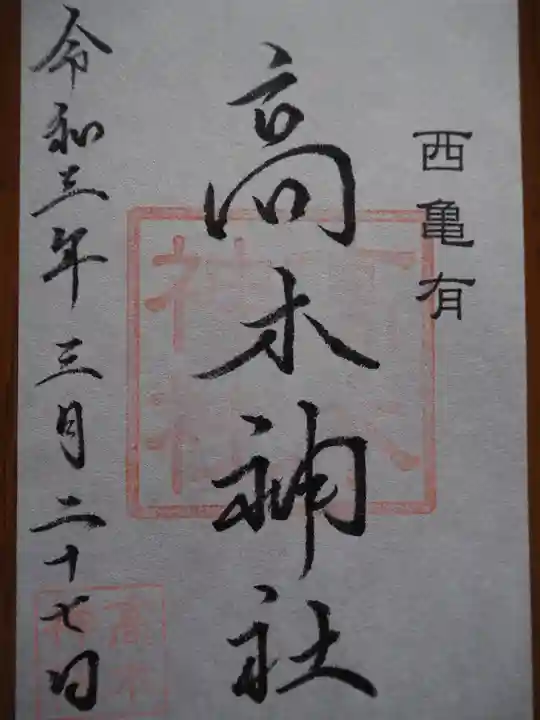 西亀有
高木神社
令和三年三月二十七日
高木神社